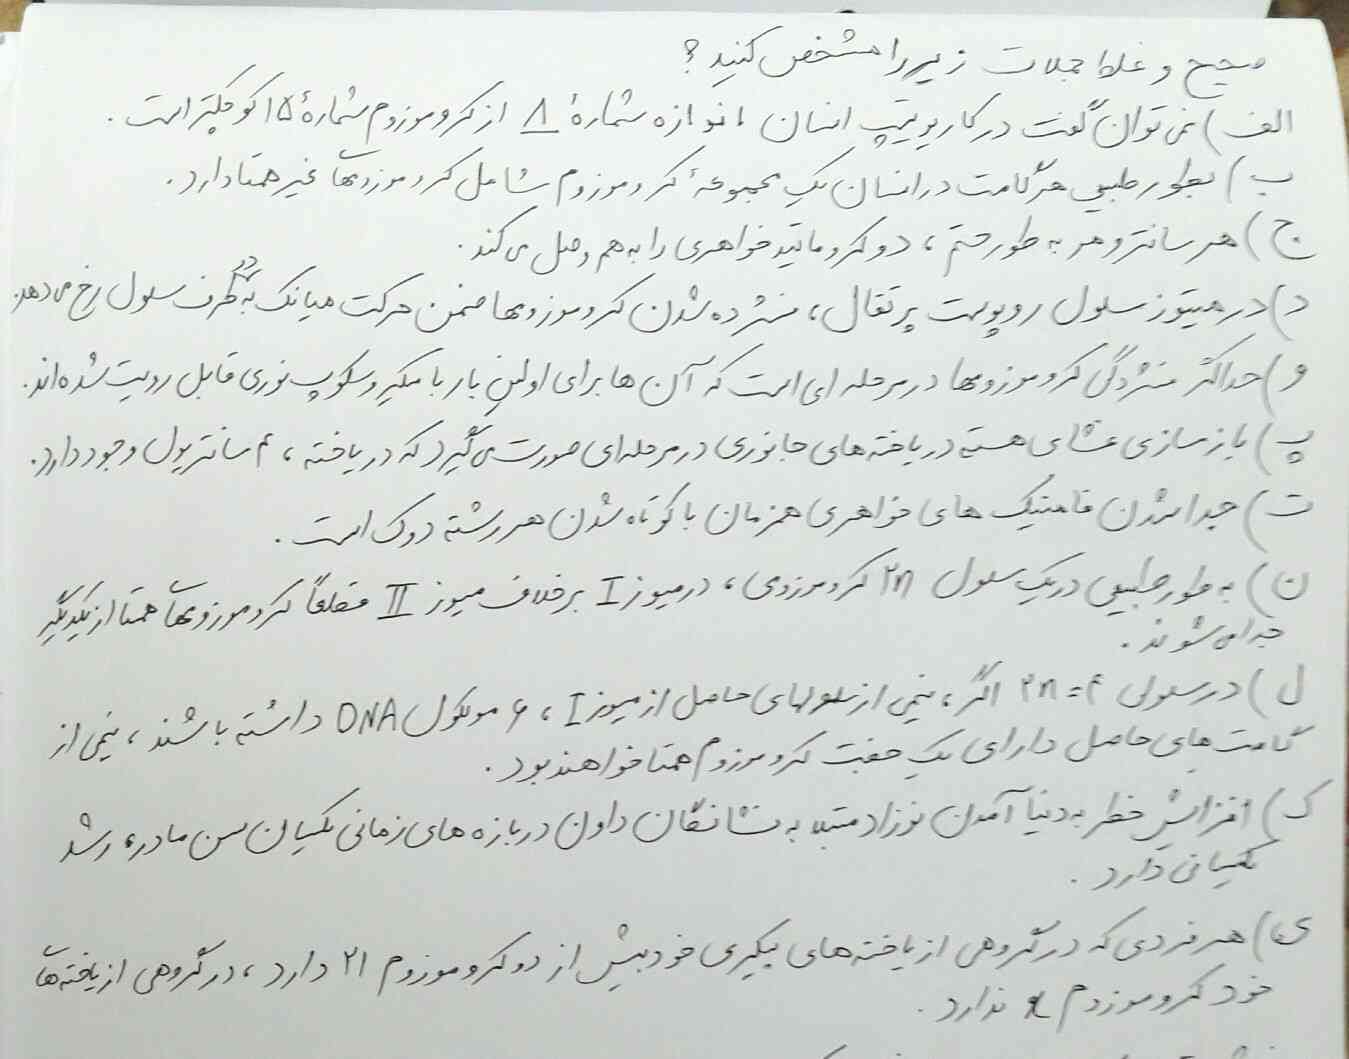 صحیح و غلط جملات زیر را مشخص کنید؟
الف) نمی‌توان گفت در کاریوتیپ انسان اندازه شمارهٔ ۸ از کروموزوم شمارهٔ ۱۵ کوچکتر است.
ب) بطور طبیعی هر گامت در انسان یک مجموعهٔ کروموزوم شامل کروموزومهای غیر همتا دارد.
ج) هر سانترومر به طور حتم، دو کروماتید خواهری را به هم وصل می‌کند.
د) در میتوز سلول روپوست پرتقال، فشرده شدن کروموزومها ضمن حرکت میانک به دو طرف سلول رخ می‌دهد.
و) حداکثر فشردگی کروموزومها در مرحله ای است که آن ها برای اولین بار با میکروسکوپ نوری قابل رویت شده‌اند.
پ) بازسازی غشای هسته در یاخته های جانوری در مرحله‌ای صورت می‌گیرد که در یاخته، ۴ سانتریول وجود دارد.
ت) جدا شدن فامتیک های خواهری همزمان با کوتاه شدن هر رشته دوک است.
ن) به طور طبیعی در یک سلول ۲n کروموزومی، در میوز I برخلاف میوز II قطعاً کروموزومهای همتا از یکدیگر
جدا می‌شوند.
ل) در سلولی ۲n=۴ اگر، نیمی از سلولهای حاصل از میوز I، ۶ مولکول DNA داشته باشند، نیمی از
گامت های حاصل دارای یک جفت کروموزوم همتا خواهند بود.
ک) افزایش خطر به دنیا آمدن نوزاد مبتلا به نشانگان داون در بازه های زمانی یکسان سن مادر، رشد
یکسانی دارد.
ی) هر فردی که در گروهی از یاخته های پیکری خود بیش از دو کروموزوم ۲۱ دارد، در گروهی از یاخته‌های
خود کروموزوم x ندارد.